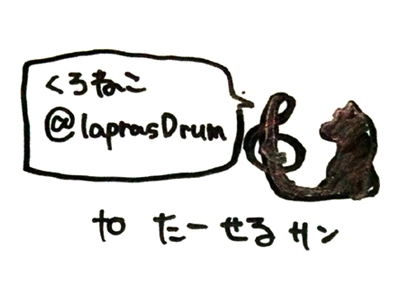 くろねこ
@laprasDrum
to たーせる サン